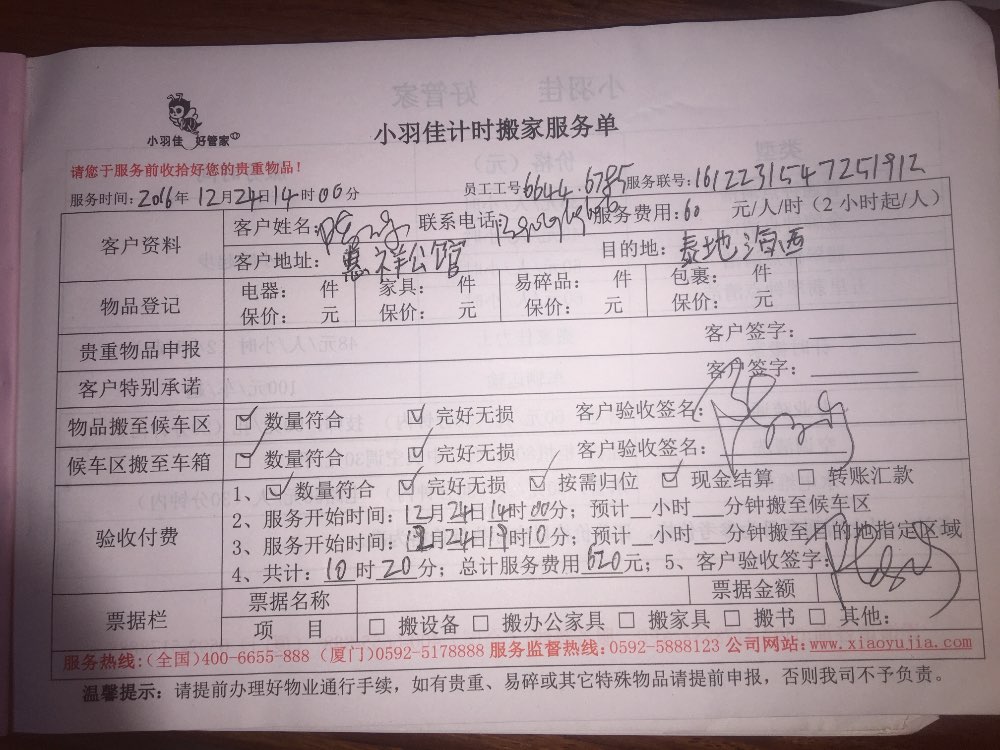 小羽佳 好管家
小羽佳计时搬家服务单
请您于服务前收拾好您的贵重物品！
服务时间：2016年12月24日14时00分 员工工号6644.6785 服务联号：1612231547251912
客户资料 客户姓名： 联系电话： 服务费用：60 元/人/时（2小时起/人）
客户地址：惠祥公馆 目的地：泰地海西
物品登记 电器： 件 家具： 件 易碎品： 件 包裹： 件
保价： 元 保价： 元 保价： 元 保价： 元
贵重物品申报 客户签字：
客户特别承诺 客户签字：
物品搬至候车区 ☑ 数量符合 ☑ 完好无损 客户验收签名：
候车区搬至车箱 ☑ 数量符合 ☑ 完好无损 客户验收签名：
验收付费 1、☑ 数量符合 ☑ 完好无损 ☑ 按需归位 ☑ 现金结算 □ 转账汇款
2、服务开始时间：12月24日14时00分；预计__小时___分钟搬至候车区
3、服务开始时间：12月24日19时10分；预计__小时___分钟搬至目的地指定区域
4、共计：10时20分；总计服务费用620元；5、客户验收签字：
票据栏 票据名称 票据金额
项 目 □ 搬设备 □ 搬办公家具 □ 搬家具 □ 搬书 □ 其他：
服务热线：（全国）400-6655-888（厦门）0592-5178888 服务监督热线：0592-5888123 公司网站：www.xiaoyujia.com
温馨提示：请提前办理好物业通行手续，如有贵重、易碎或其它特殊物品请提前申报，否则我司不予负责。